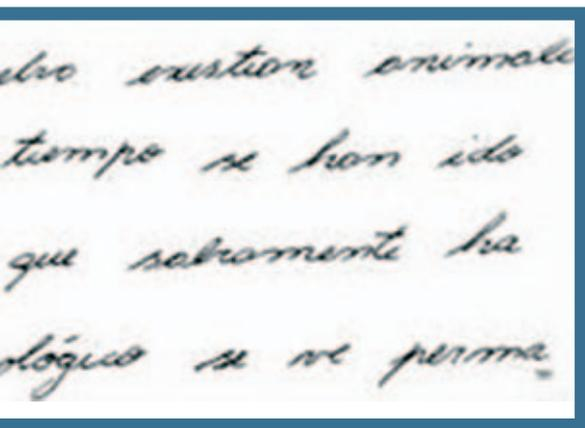 existian animale
tiempo se han ido
que sabiamente ha
ológico se ve perma_